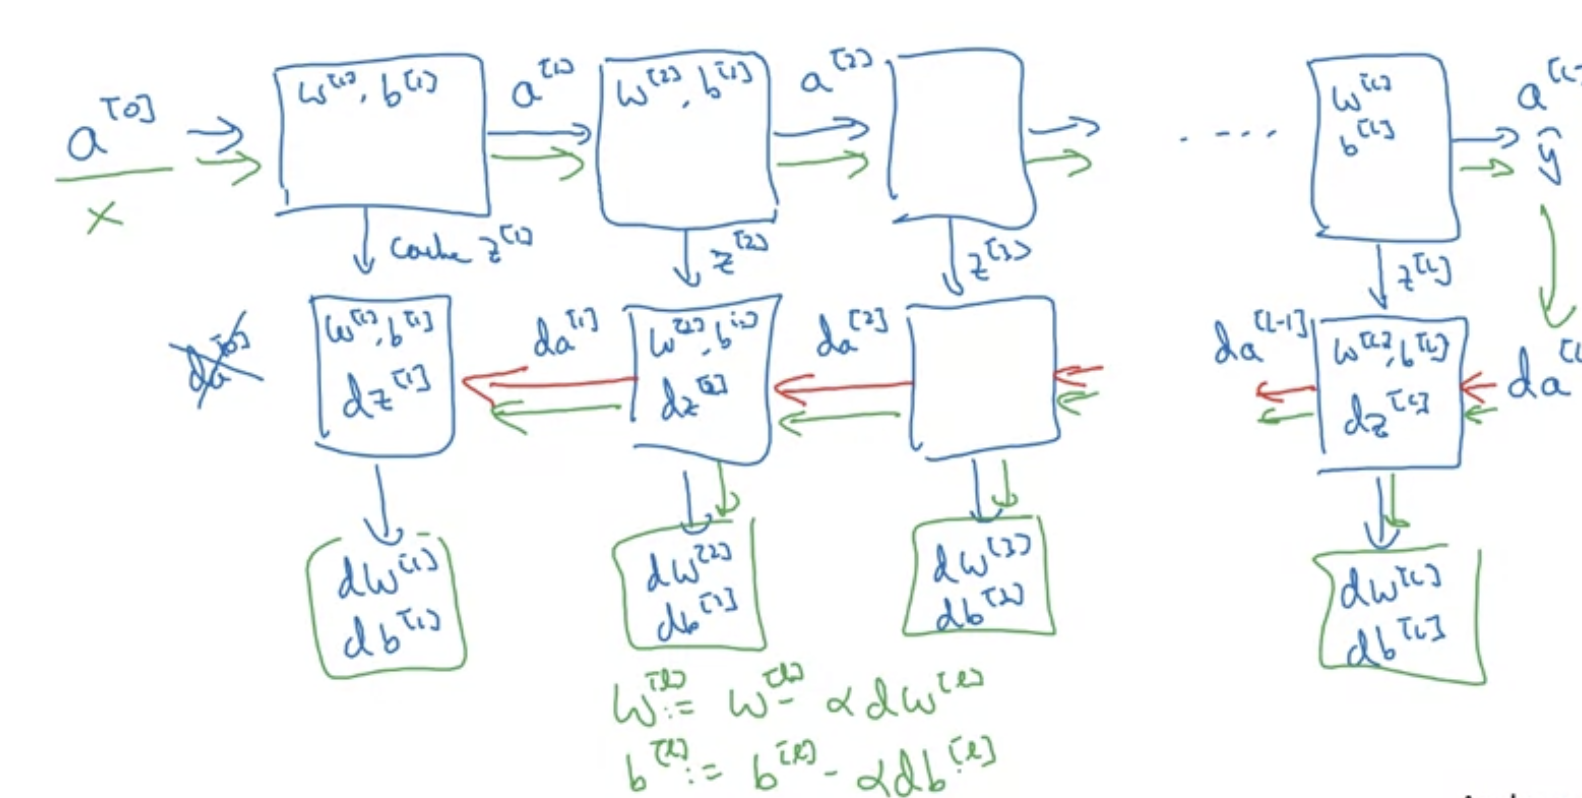 a^[0]
x
w^[1], b^[1]
a^[1]
w^[2], b^[2]
a^[2]
....
w^[L]
b^[L]
a^[L
ŷ
cache z^[1]
z^[2]
z^[3]
z^[L]
da^[0]
w^[1], b^[1]
dz^[1]
da^[1]
w^[2], b^[2]
dz^[2]
da^[2]
da^[L-1]
w^[L], b^[L]
dz^[L]
da^[L
dw^[1]
db^[1]
dw^[2]
db^[2]
dw^[3]
db^[3]
dw^[L]
db^[L]
w^[l] := w^[l] - αdw^[l]
b^[l] := b^[l] - αdb^[l]